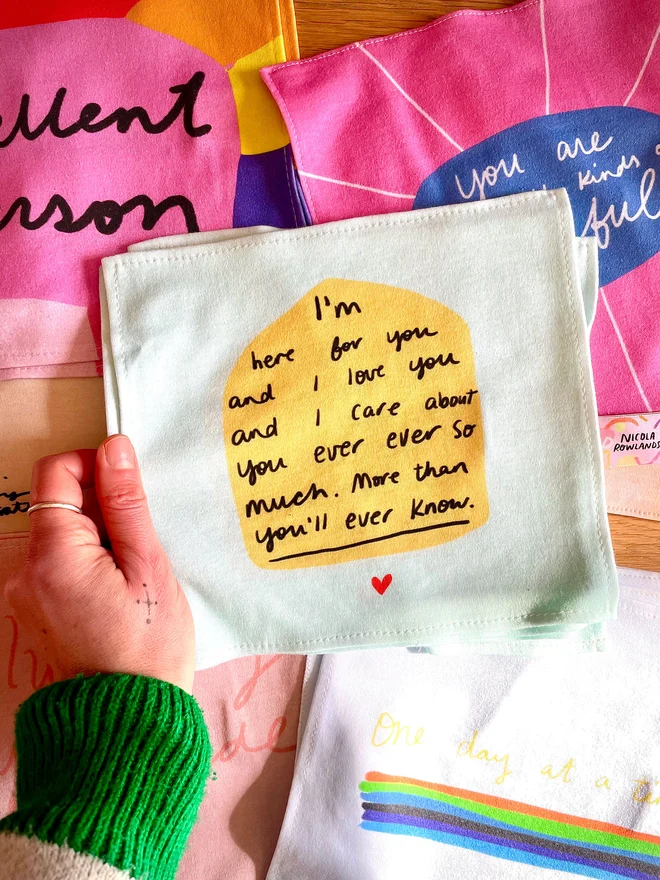 ellent
erson
You are
kinds
ful
I'm
here for you
and I love you
and I care about
you ever ever so
much. More than
you'll ever know.
NICOLA
ROWLANDS
One day at a